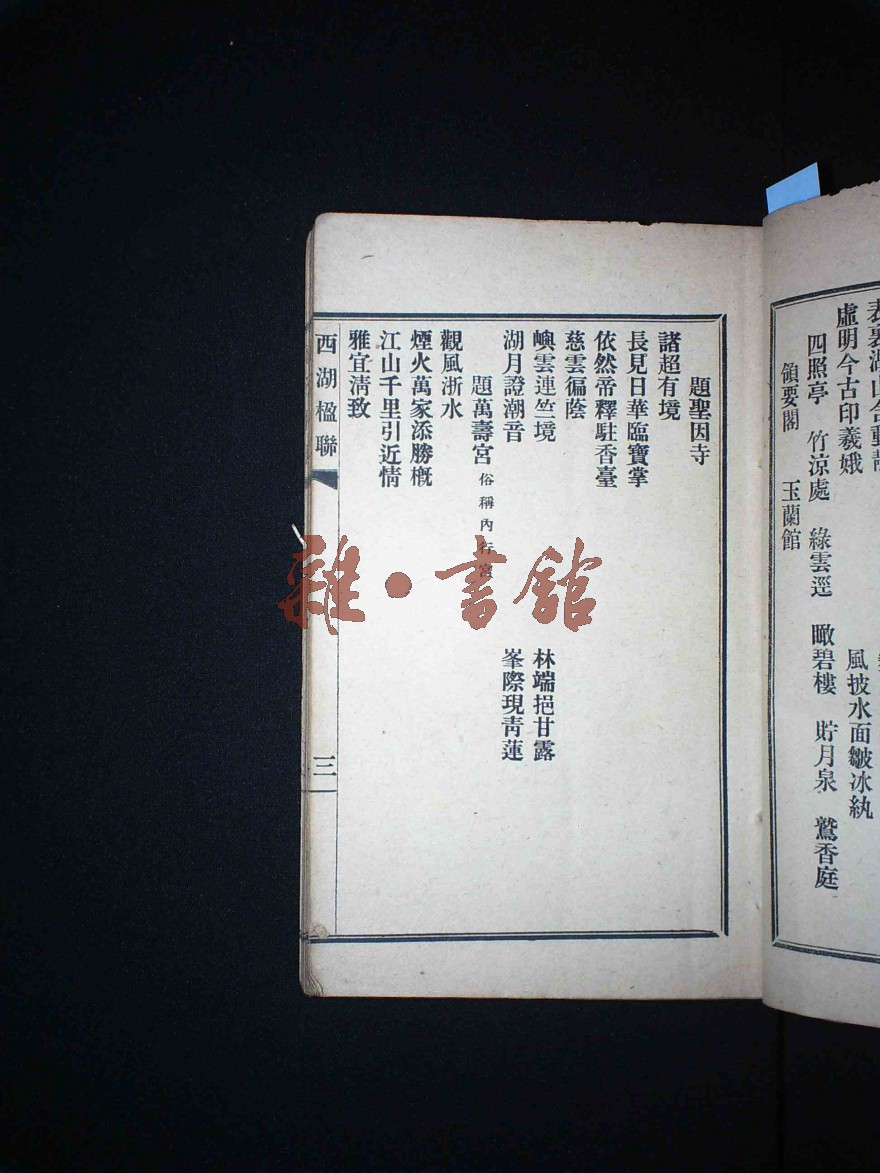 表裏湖山含動靜
虛明今古印羲娥
風披水面皺冰紈
四照亭　竹涼處　綠雲逕　瞰碧樓　貯月泉　鷲香庭
領要閣　玉蘭館
題聖因寺
諸超有境
長見日華臨寶掌
依然帝釋駐香臺
慈雲徧蔭
嶼雲連竺境　林端挹甘露
湖月證潮音　峯際現靑蓮
題萬壽宮 俗稱內行宮
觀風浙水
煙火萬家添勝槪
江山千里引近情
雅宜淸致
西湖楹聯
三
雜·書館